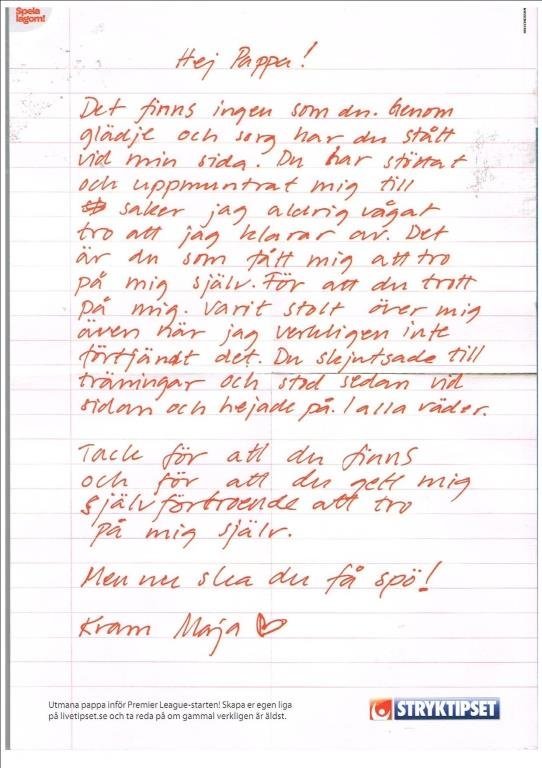 Spela
lagom!
Hej Pappa!
Det finns ingen som du. Genom
glädje och sorg har du stått
vid min sida. Du har stöttat
och uppmuntrat mig till
saker jag aldrig vågat
tro att jag klarar av. Det
är du som fått mig att tro
på mig själv. För att du trott
på mig. Varit stolt över mig
även när jag verkligen inte
förtjändt det. Du skjutsade till
träningar och stod sedan vid
sidan och hejade på. I alla väder.
Tack för att du finns
och för att du gett mig
självförtroende att tro
på mig själv.
Men nu ska du få spö!
Kram Maja
Utmana pappa inför Premier League-starten! Skapa er egen liga
på livetipset.se och ta reda på om gammal verkligen är äldst.
STRYKTIPSET